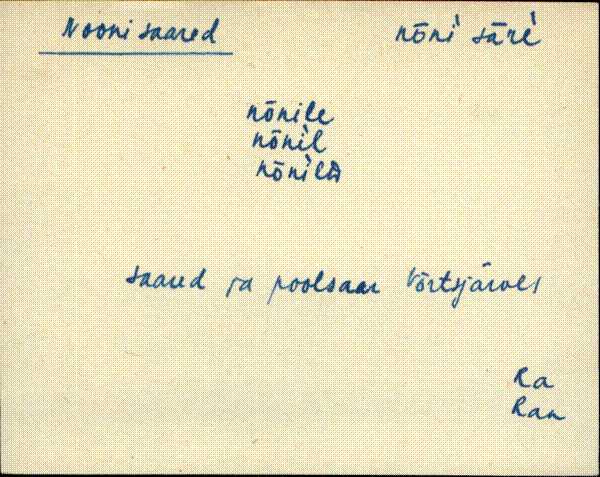 Noonisaared nōni sāre̮
nōnile
nōnil
nōnilᴅ
saared ja poolsaar Võrtsjärves
Ra
Ran